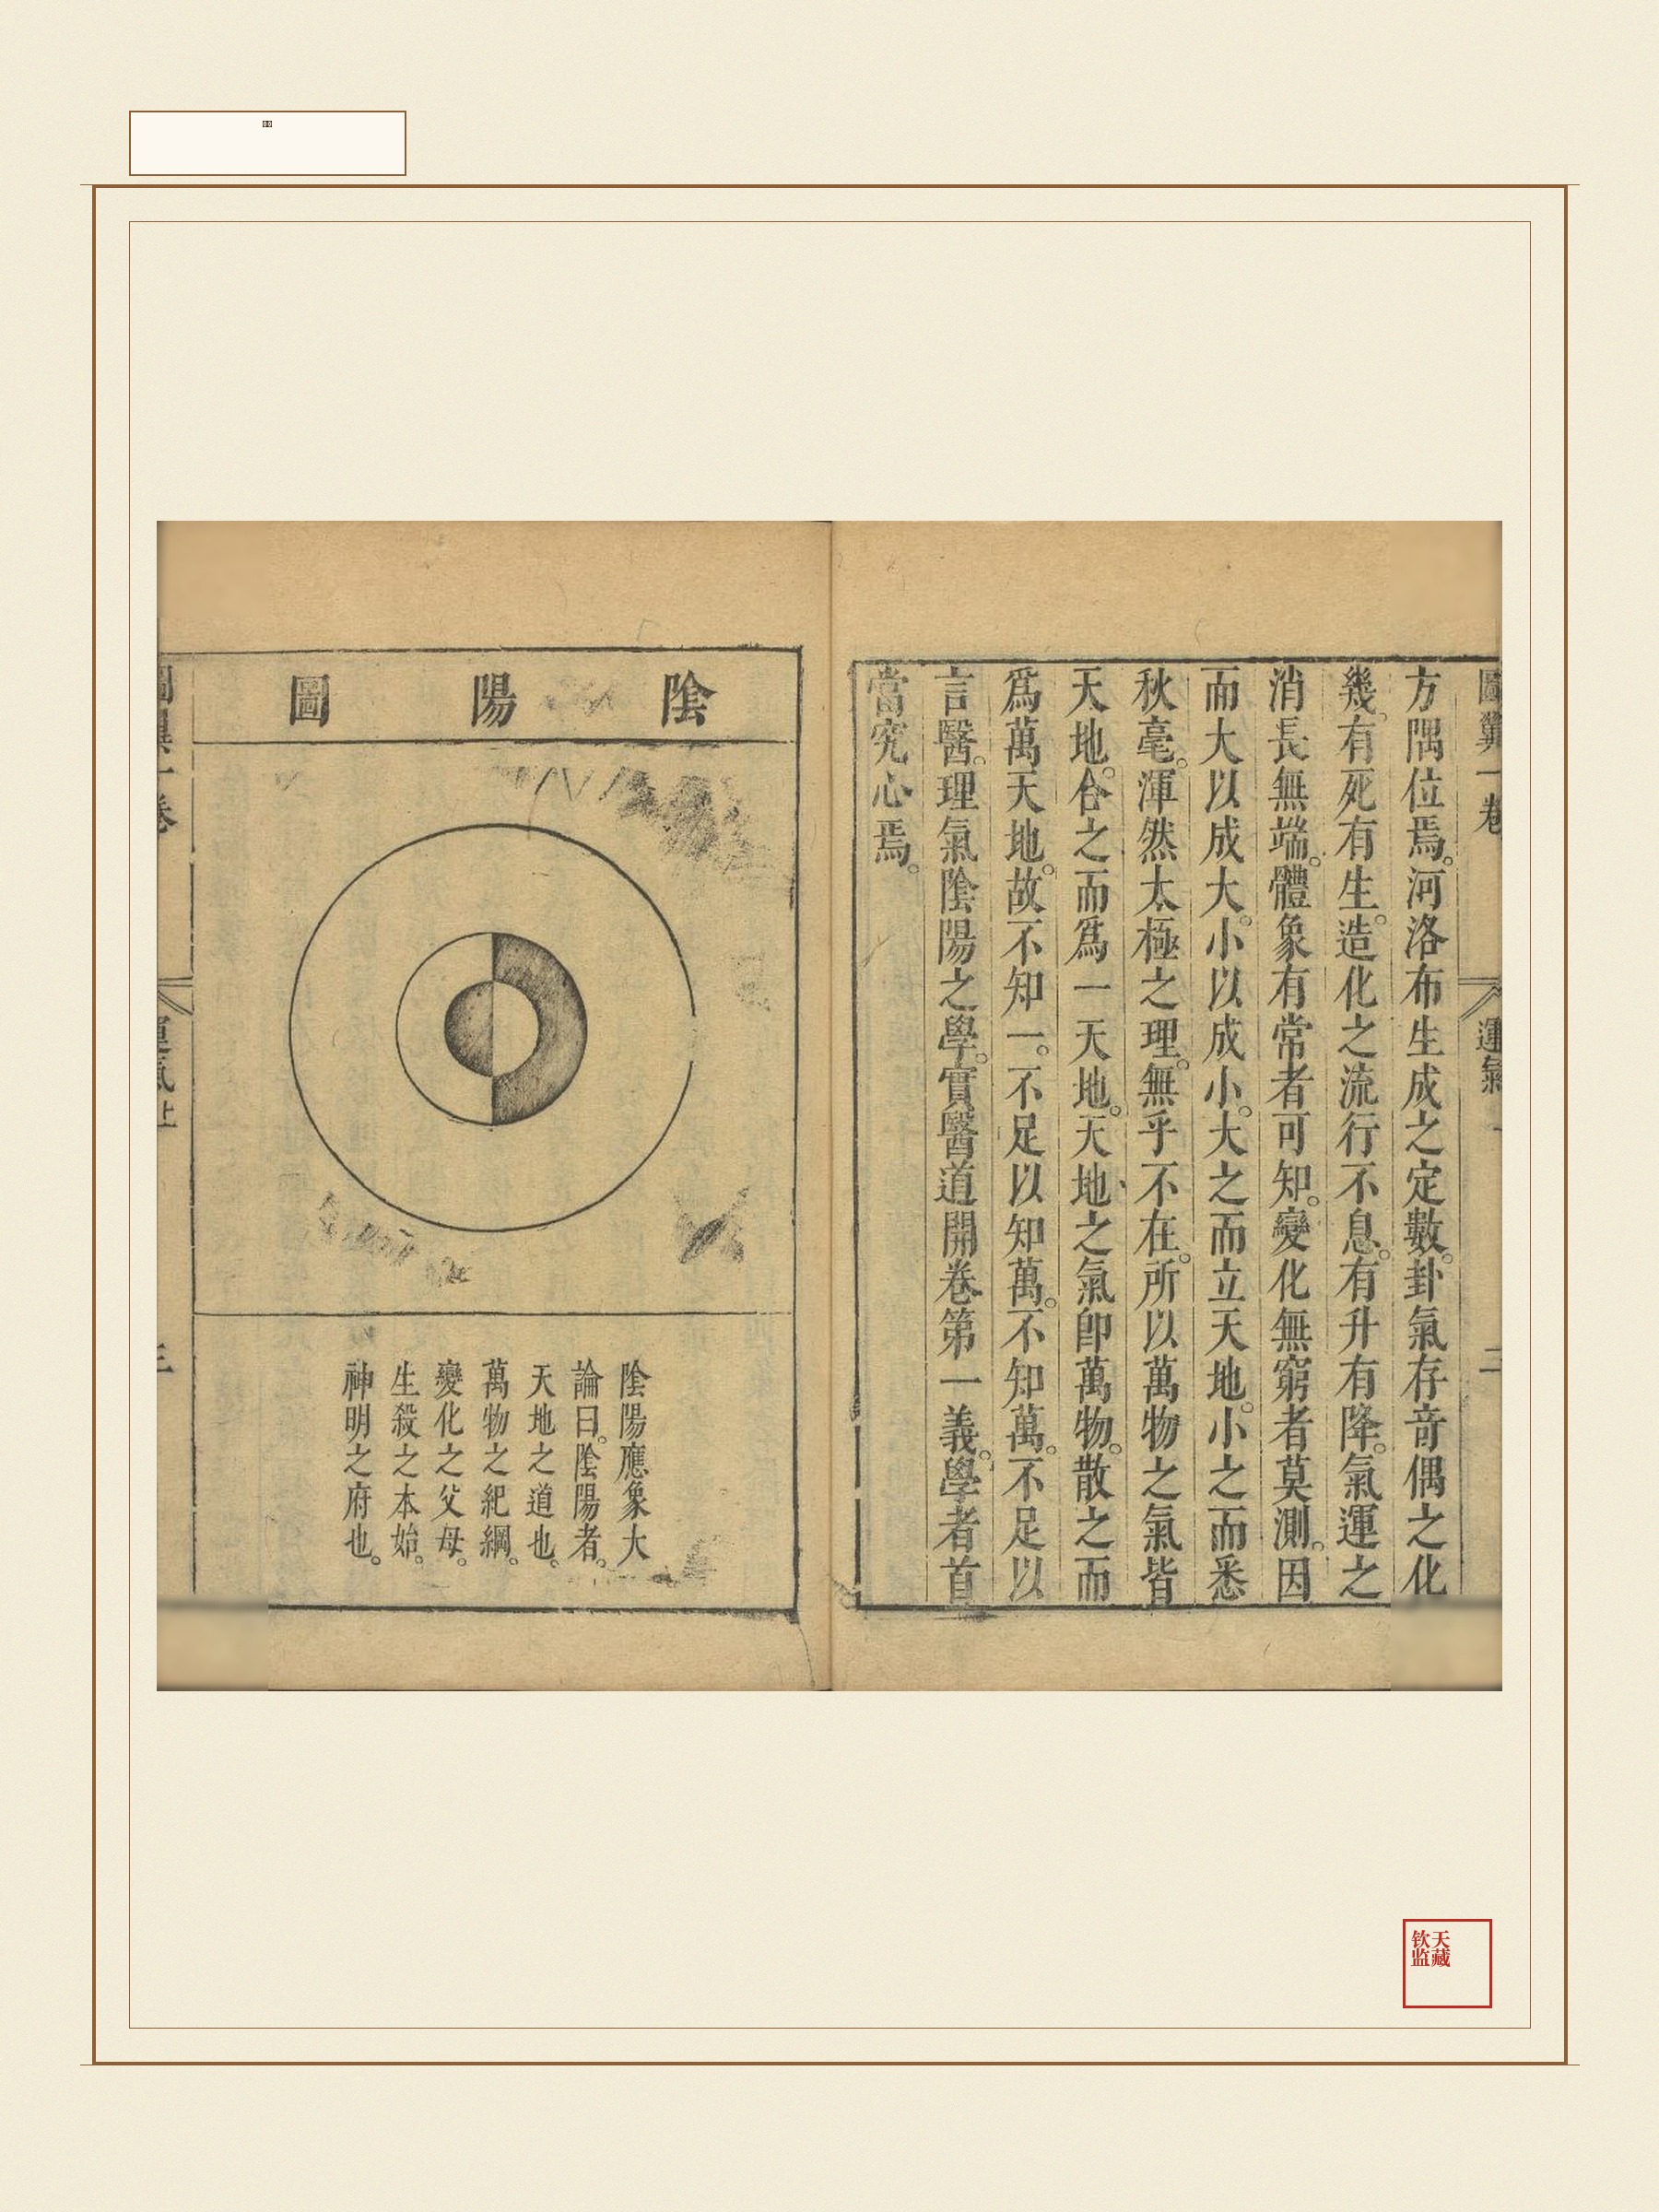 圖翼一卷
運氣
二
方隅位焉。河洛布生成之定數。卦氣存奇偶之化
幾。有死有生。造化之流行不息。有升有降。氣運之
消長無端。體象有常者可知。變化無窮者莫測。因
而大以成大。小以成小。大之而立天地。小之而悉
秋毫。渾然太極之理。無乎不在。所以萬物之氣皆
天地。合之而爲一天地。天地之氣卽萬物。散之而
爲萬天地。故不知一。不足以知萬。不知萬。不足以
言醫。理氣陰陽之學。實醫道開卷第一義。學者首
當究心焉。
陰陽圖
陰陽應象大
論曰。陰陽者。
天地之道也。
萬物之紀綱。
變化之父母。
生殺之本始。
神明之府也。
圖翼一卷
運氣上
三
钦天
监藏